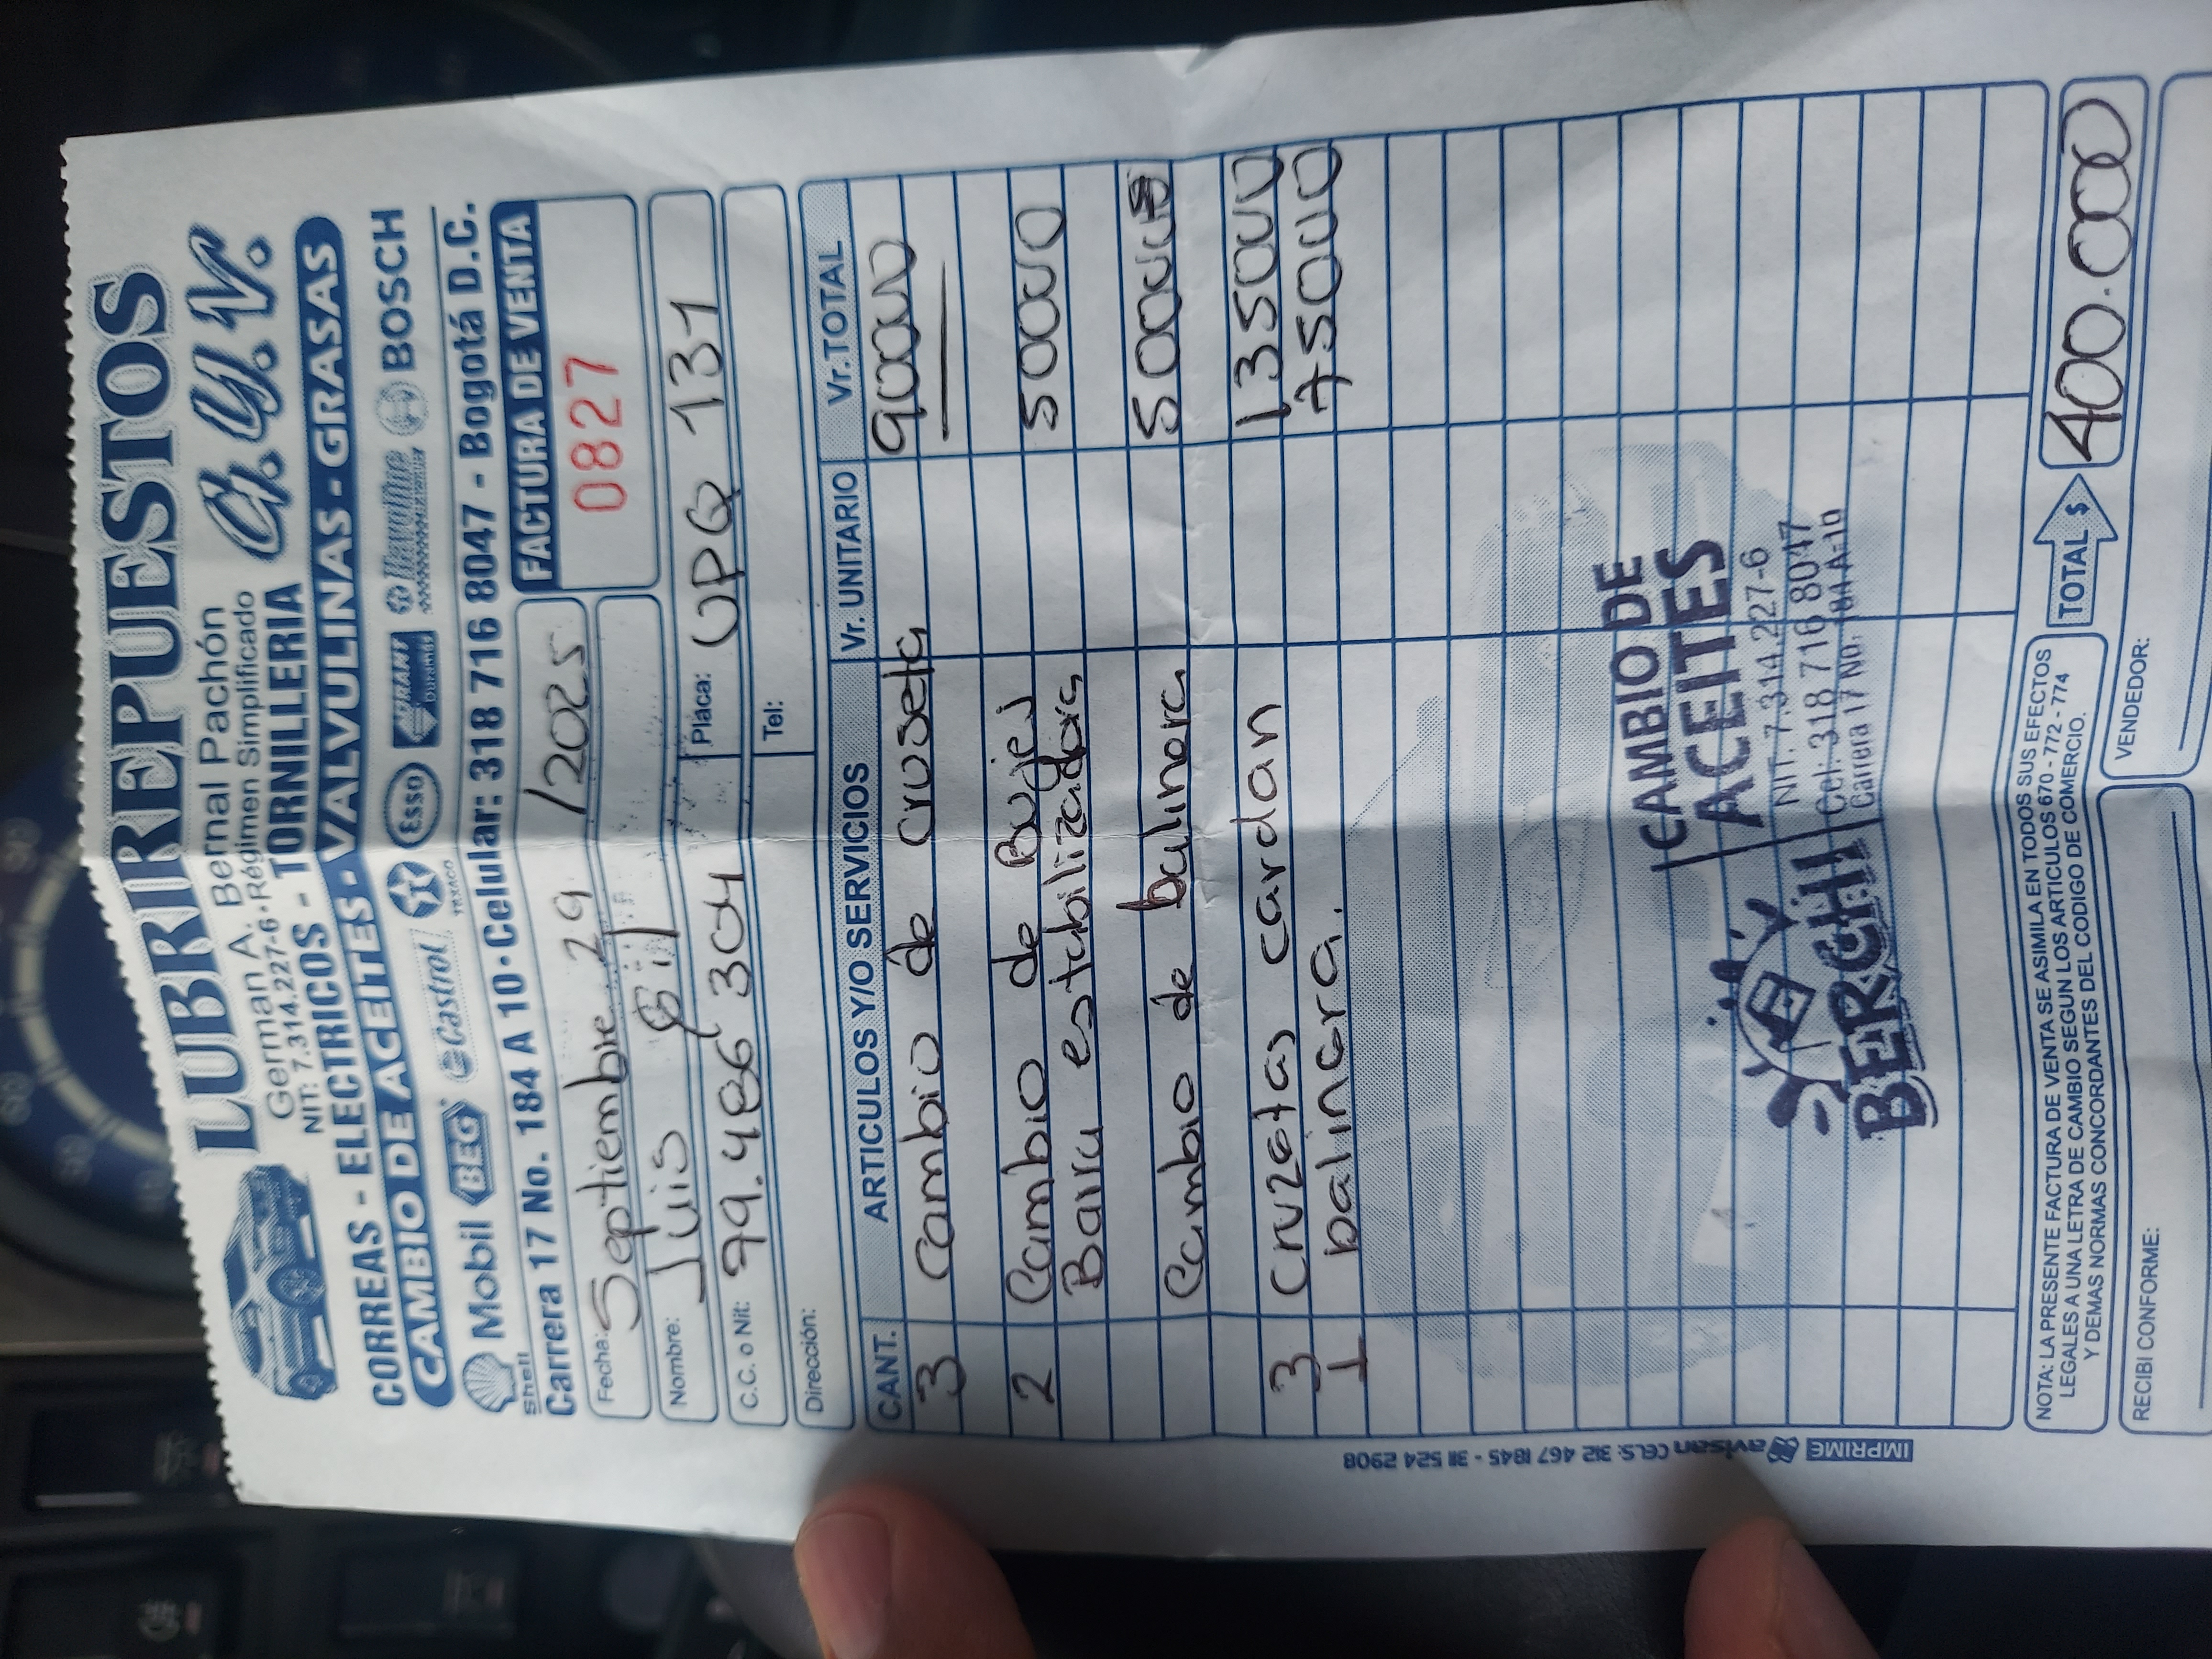 LUBRIREPUESTOS
G.Y.N.
German A. Bernal Pachón
NIT: 7.314.227-6 • Régimen Simplificado
CORREAS - ELECTRICOS - TORNILLERIA
CAMBIO DE ACEITES - VALVULINAS - GRASAS
Shell Mobil BEG Castrol TEXACO Esso Havoline BOSCH
Carrera 17 No. 184 A 10 • Celular: 318 716 8047 - Bogotá D.C.
Fecha: Septiembre 29 /2025
FACTURA DE VENTA
0827
Nombre: Luis Gil
C.C. o Nit: 79.486 304
Placa: UPQ 131
Dirección:
Tel:
CANT. ARTICULOS Y/O SERVICIOS Vr. UNITARIO Vr. TOTAL
3 Cambio de cruseta 90000
2 Cambio de Bujes 50000
Barra estabilizadora
Cambio de balinera 50000
3 Cruzetas cardan 135000
1 balinera. 75000
CAMBIO DE
ACEITES
BERCHI
NIT. 7.314.227-6
Cel: 318 716 8047
Carrera 17 No. 184 A-10
NOTA: LA PRESENTE FACTURA DE VENTA SE ASIMILA EN TODOS SUS EFECTOS
LEGALES A UNA LETRA DE CAMBIO SEGUN LOS ARTICULOS 670 - 772 - 774
Y DEMAS NORMAS CONCORDANTES DEL CODIGO DE COMERCIO.
TOTAL $ 400.000
RECIBI CONFORME:
VENDEDOR:
IMPRIME avisan CELS: 312 467 1845 - 311 524 2908